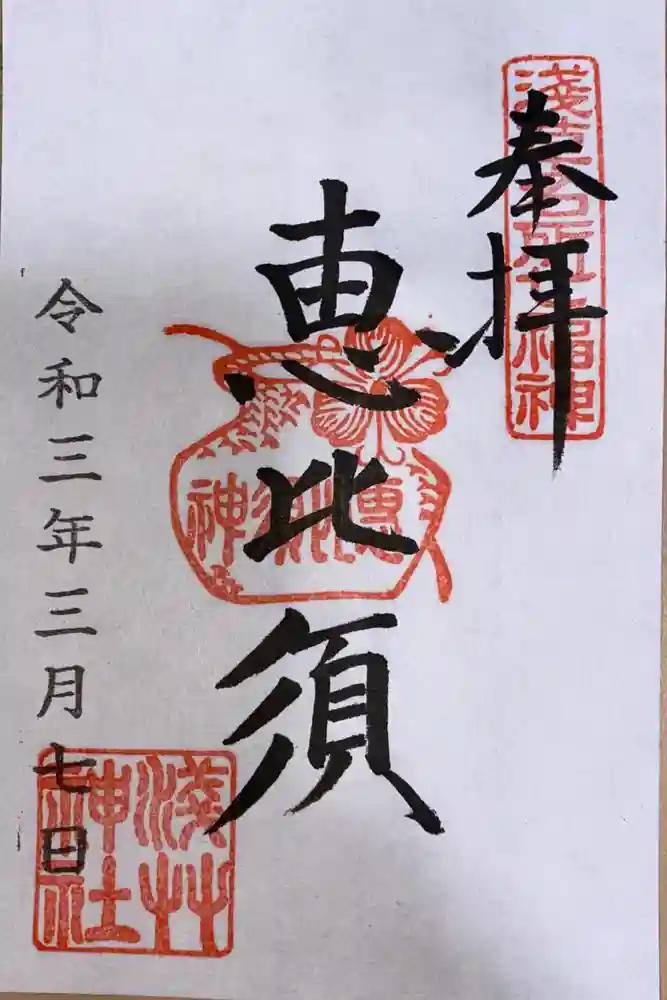 奉拝
淺草名所七福神
恵比須
恵比須神
令和三年三月七日
淺草神社